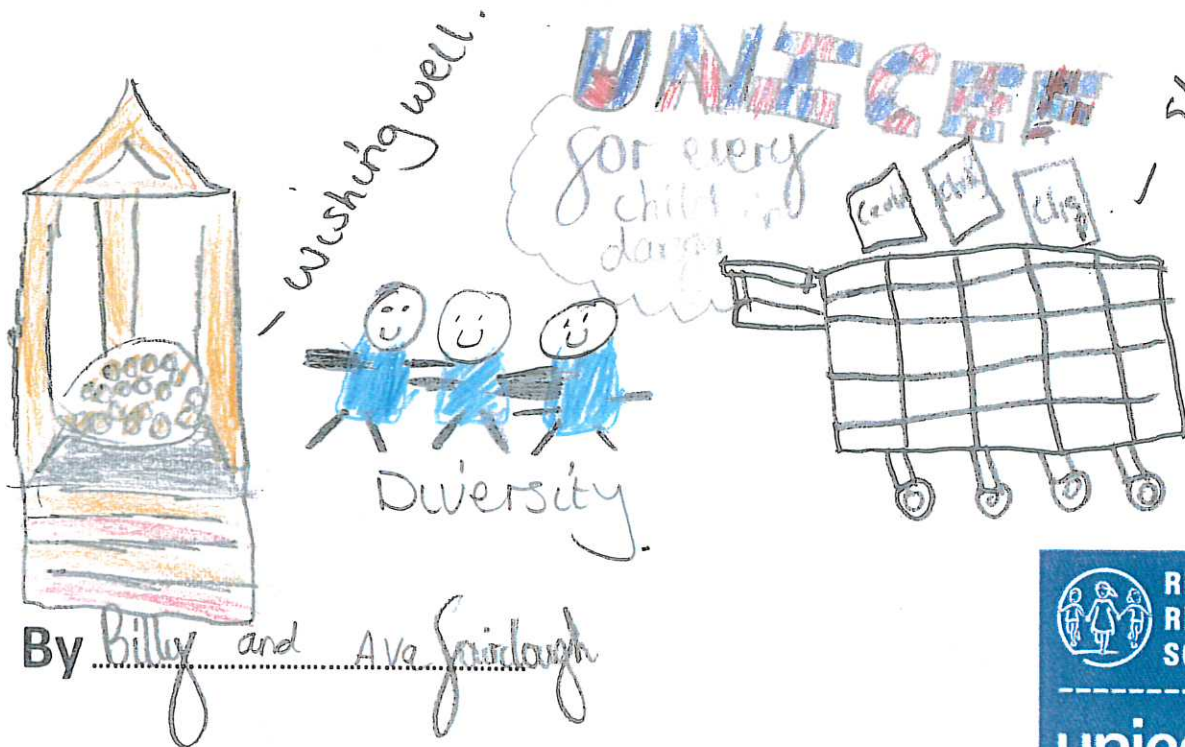 wishing well.
UNICEF
for every
child in
danger
Diversity.
By Billy and Ava Fairclough
R
R
S
unice